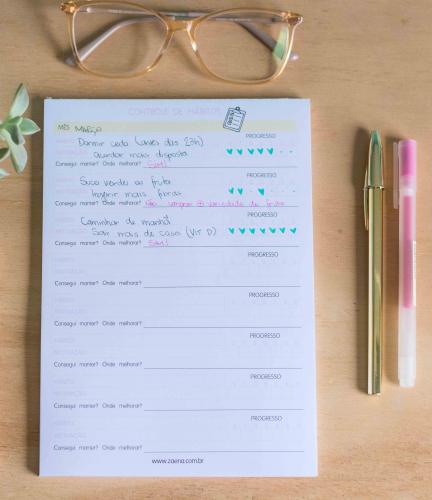 CONTROLE DE HÁBITOS
MÊS Março
PROGRESSO
Dormir cedo (antes das 23h)
Acordar mais disposta
Consegui manter? Onde melhorar? Sim!
PROGRESSO
Suco verde ou fruta
Ingerir mais fibras
Consegui manter? Onde melhorar? Não, comprar variedade de frutas
PROGRESSO
Caminhar de manhã
Sair mais de casa (VIT D)
Consegui manter? Onde melhorar? Sim!
PROGRESSO
Consegui manter? Onde melhorar?
PROGRESSO
Consegui manter? Onde melhorar?
PROGRESSO
Consegui manter? Onde melhorar?
PROGRESSO
Consegui manter? Onde melhorar?
PROGRESSO
Consegui manter? Onde melhorar?
www.zaena.com.br